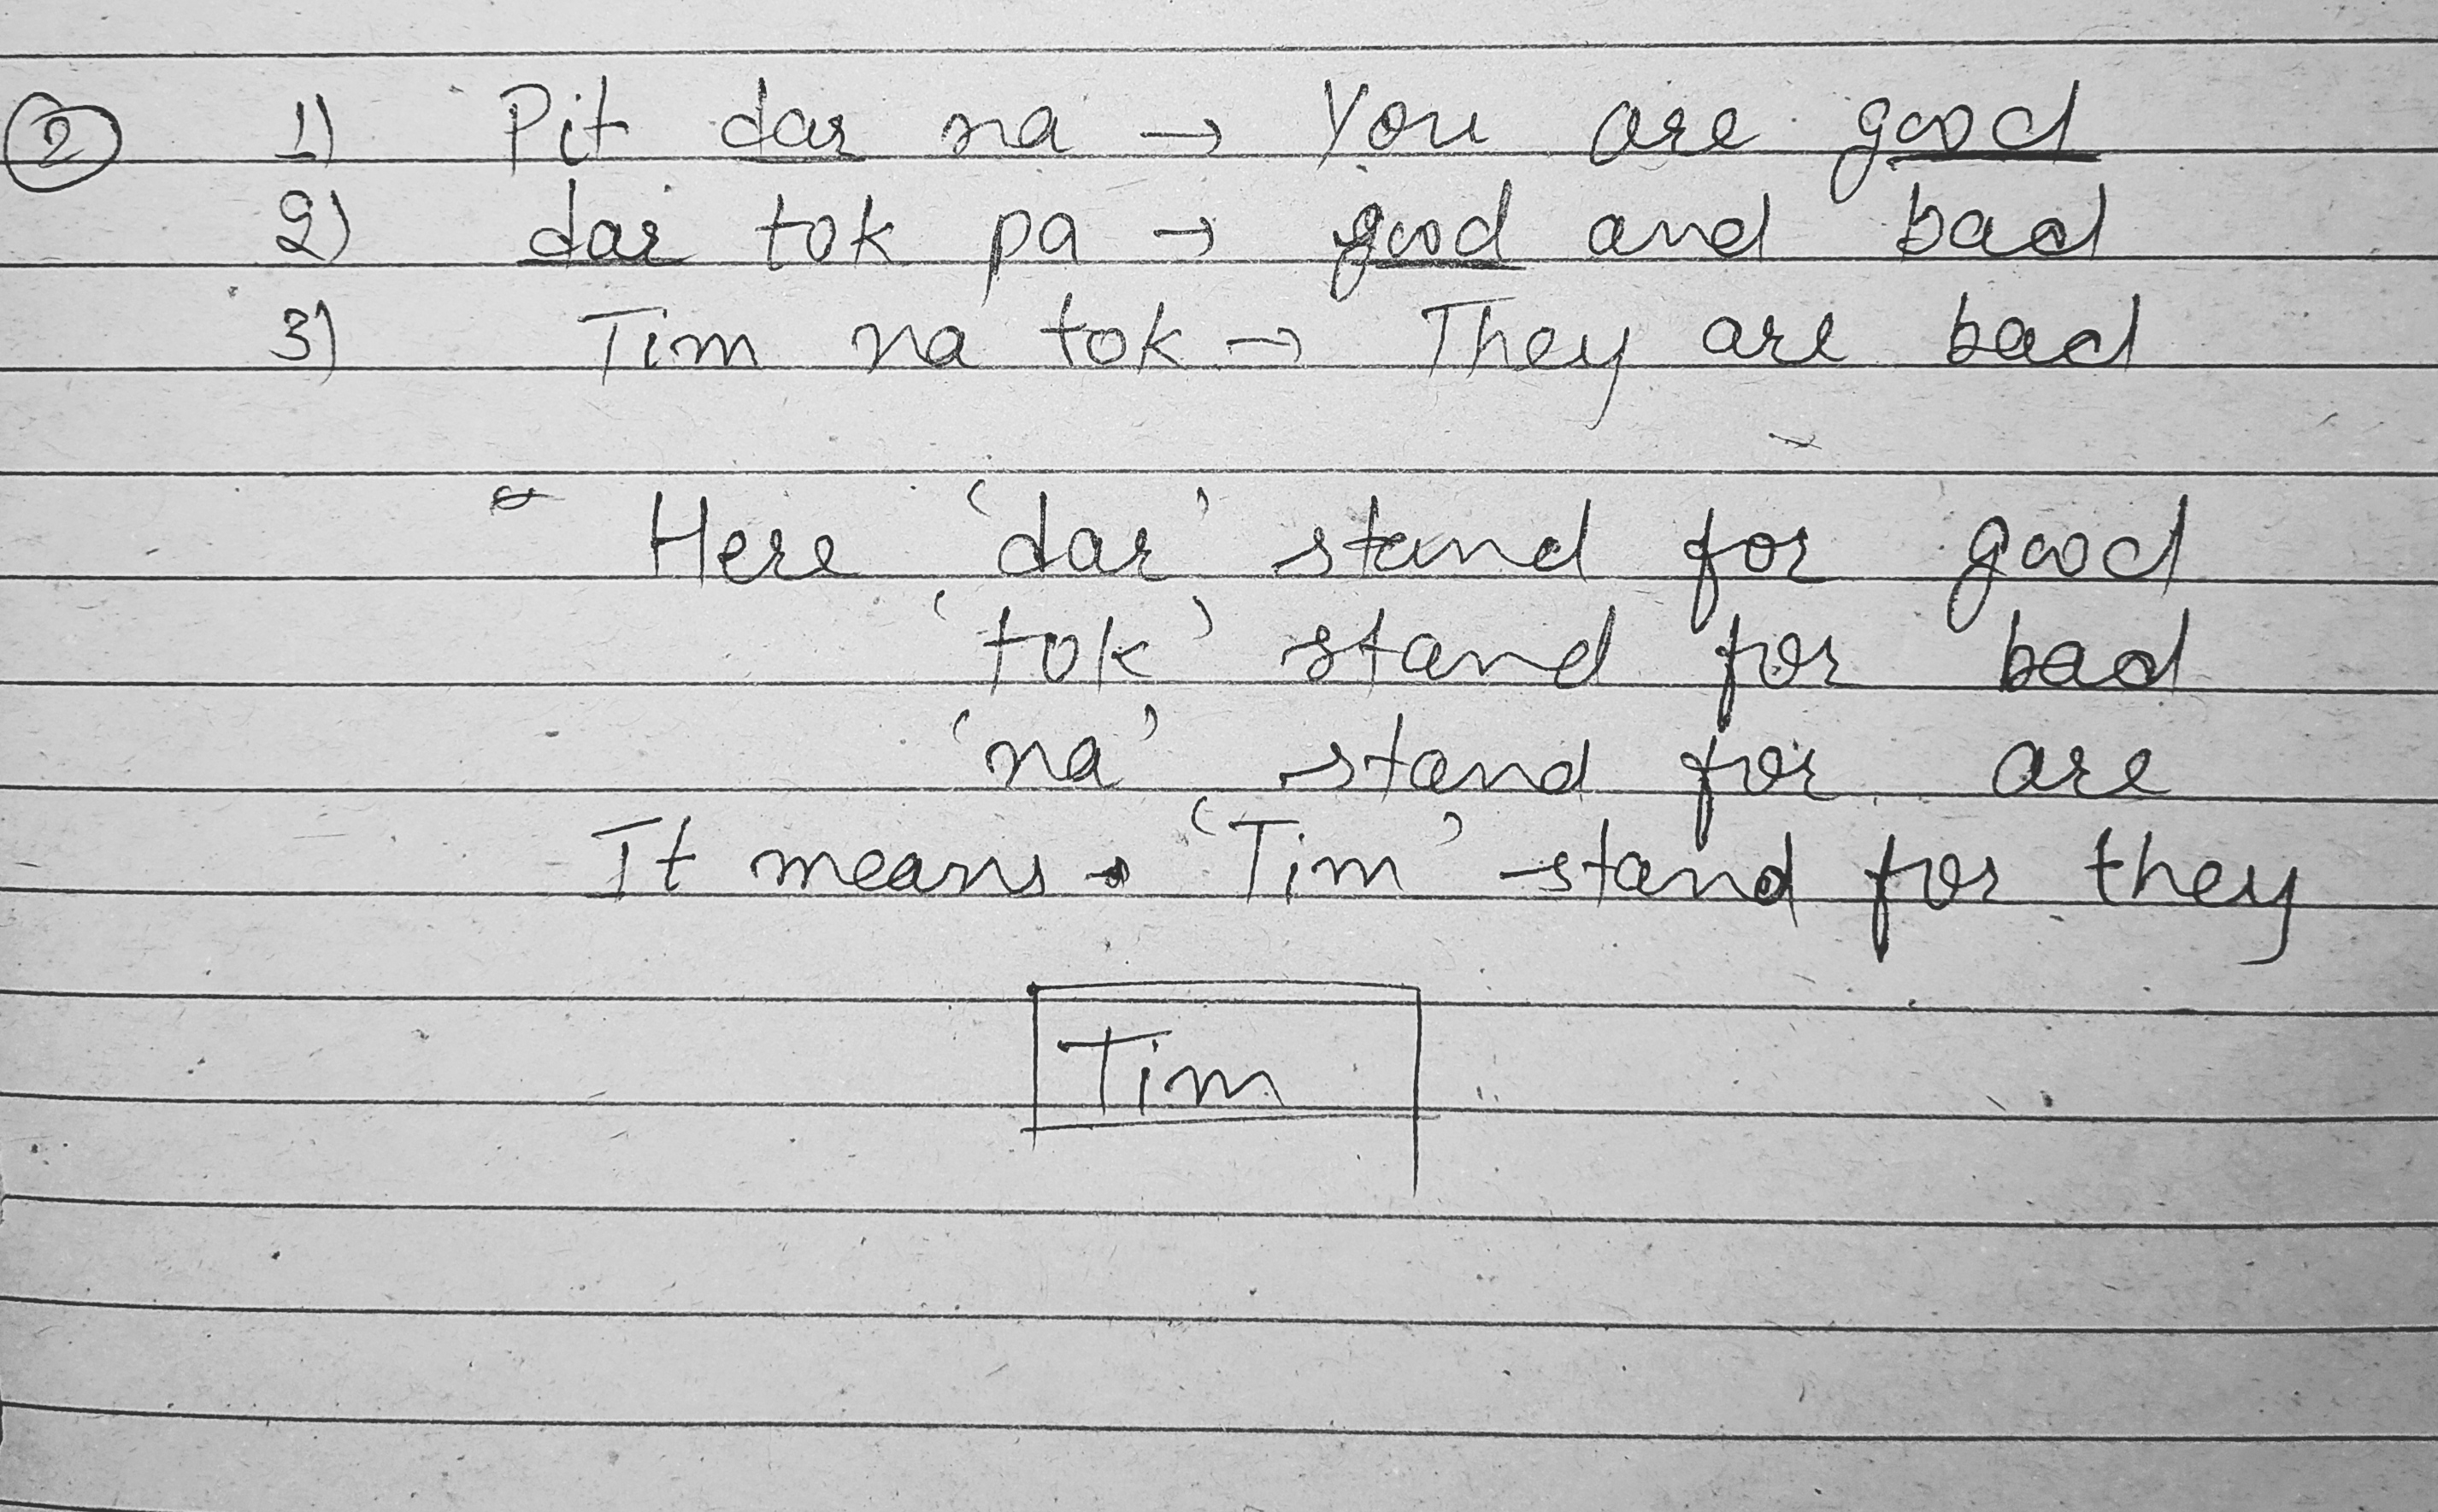 ② 1) Pit dar na → You are good
2) dar tok pa → good and bad
3) Tim na tok → They are bad
Here 'dar' stand for good
'tok' stand for bad
'na' stand for are
It means 'Tim' stand for they
Tim